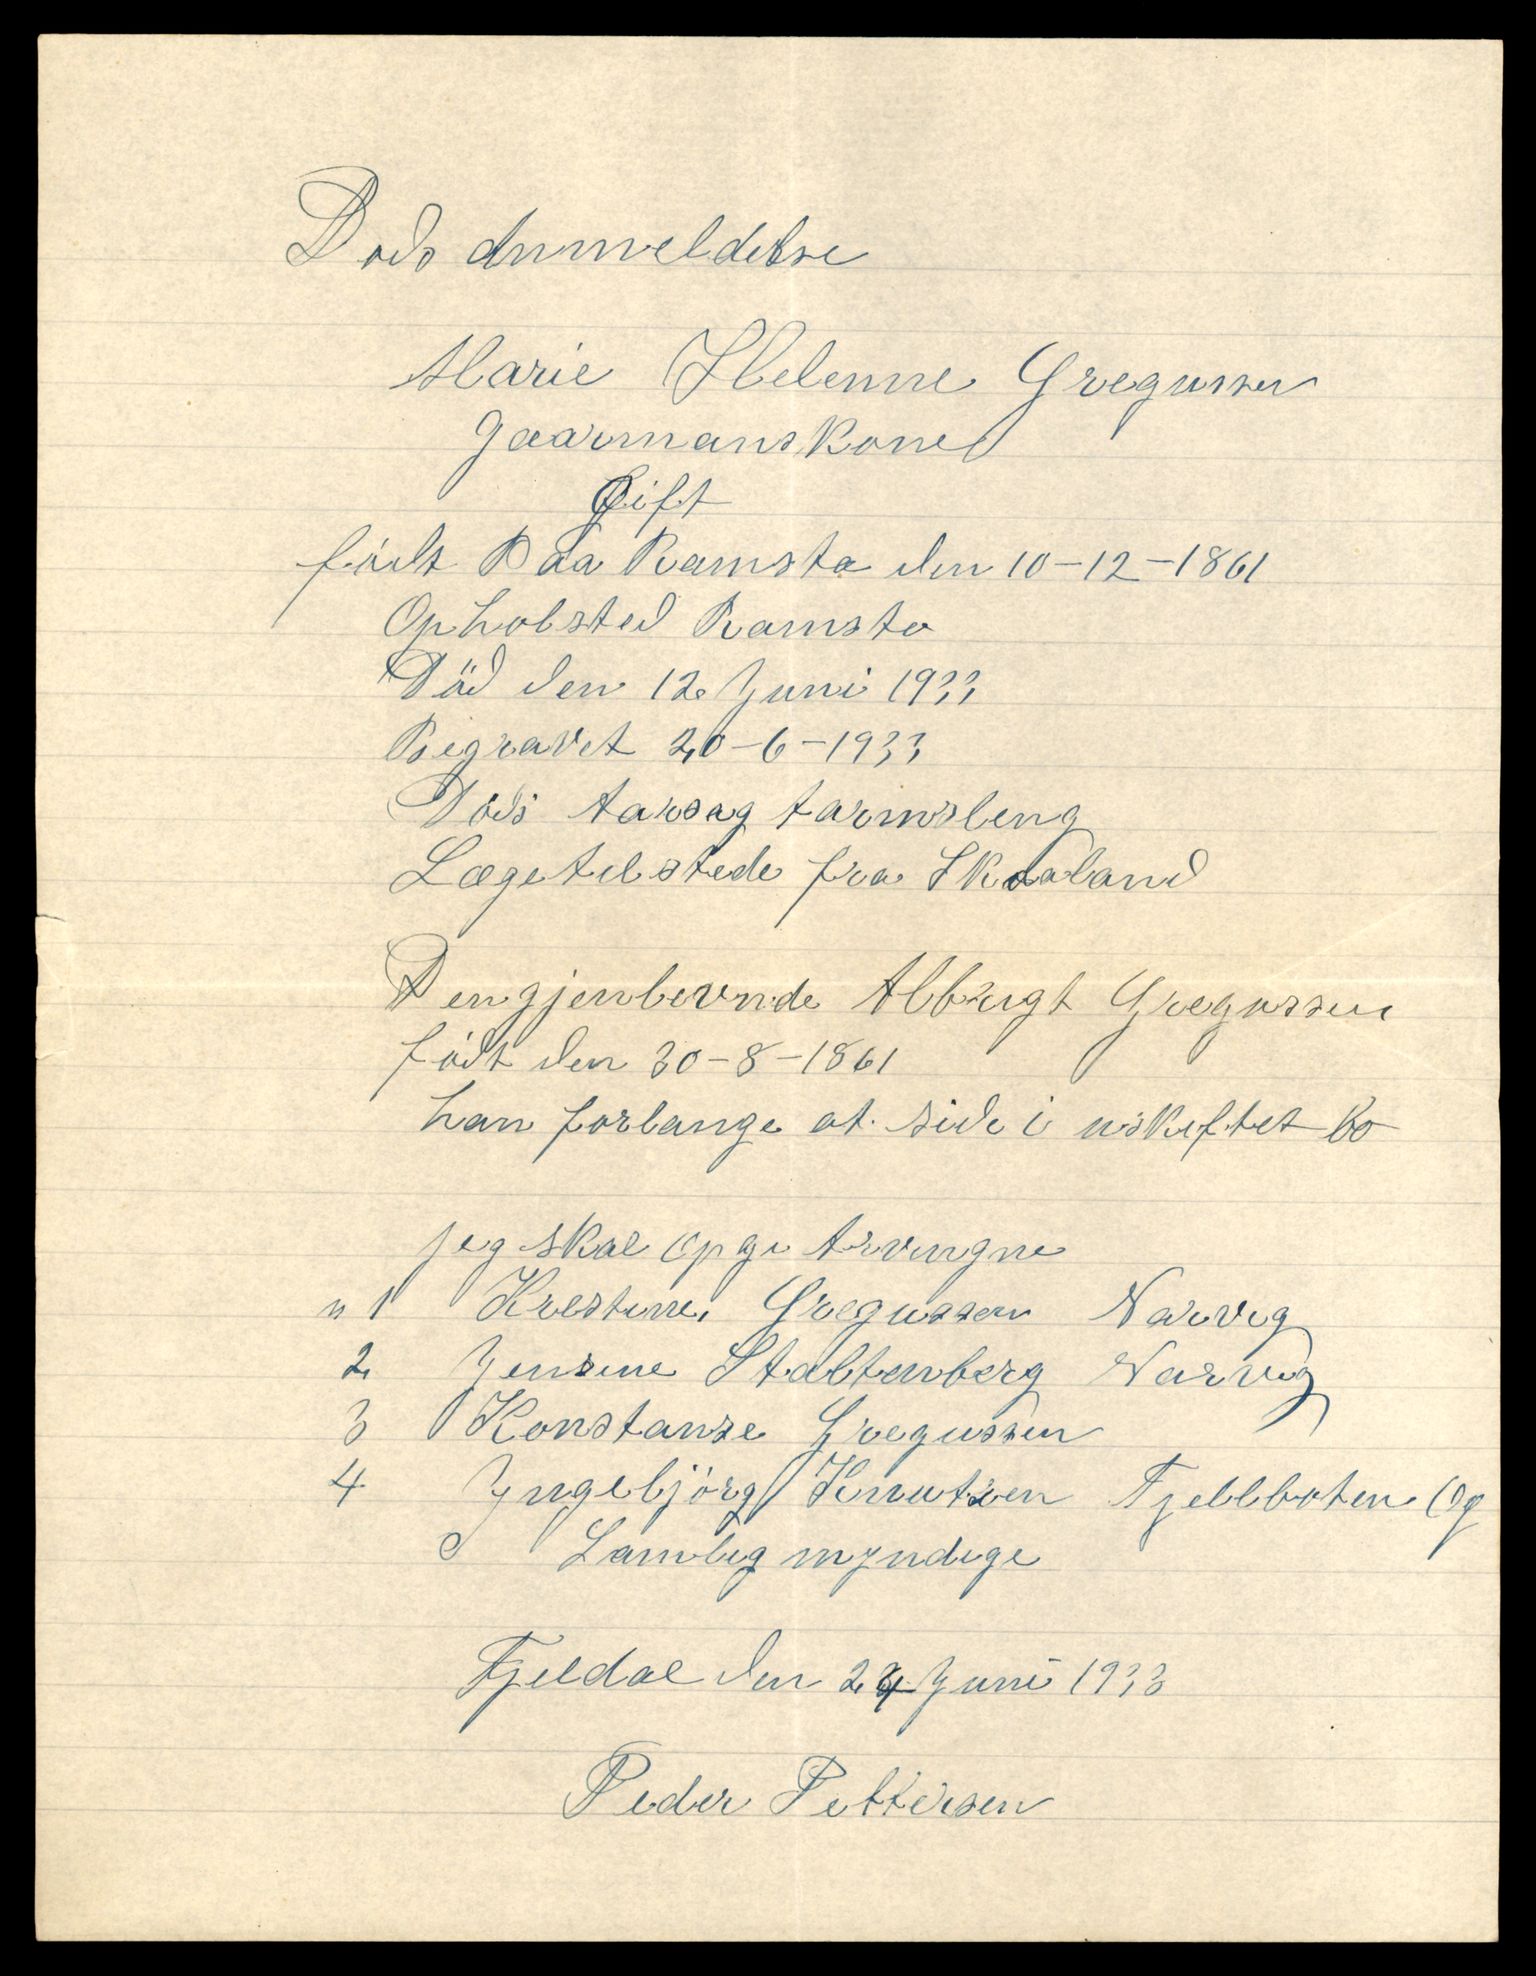 Døds Anmeldelse
Marie Helenne Gregussen
Gaarmanskone
Gift
født Paa Ramsta den 10-12-1861
Opholsted Ramsta
Död den 12. Juni 1933
Begravet 20-6-1933
Døds Aarsag tarmsleng
Læge tilstede fra Skaaland
Den gjenlevnde Albrigt Gregussen
født den 30-8-1861
han forlange at side i uskiftet bo
jeg skal opgi Arvingne
n 1 Krestine Gregussen Narvig
2 Jensine Stoltenberg Narvig
3 Konstanse Gregussen
4 Yngebjörg Knutsen Fjellboten Og
Samlig myndige
Fjeldal den 24 Juni 1933
Peder Pettersen